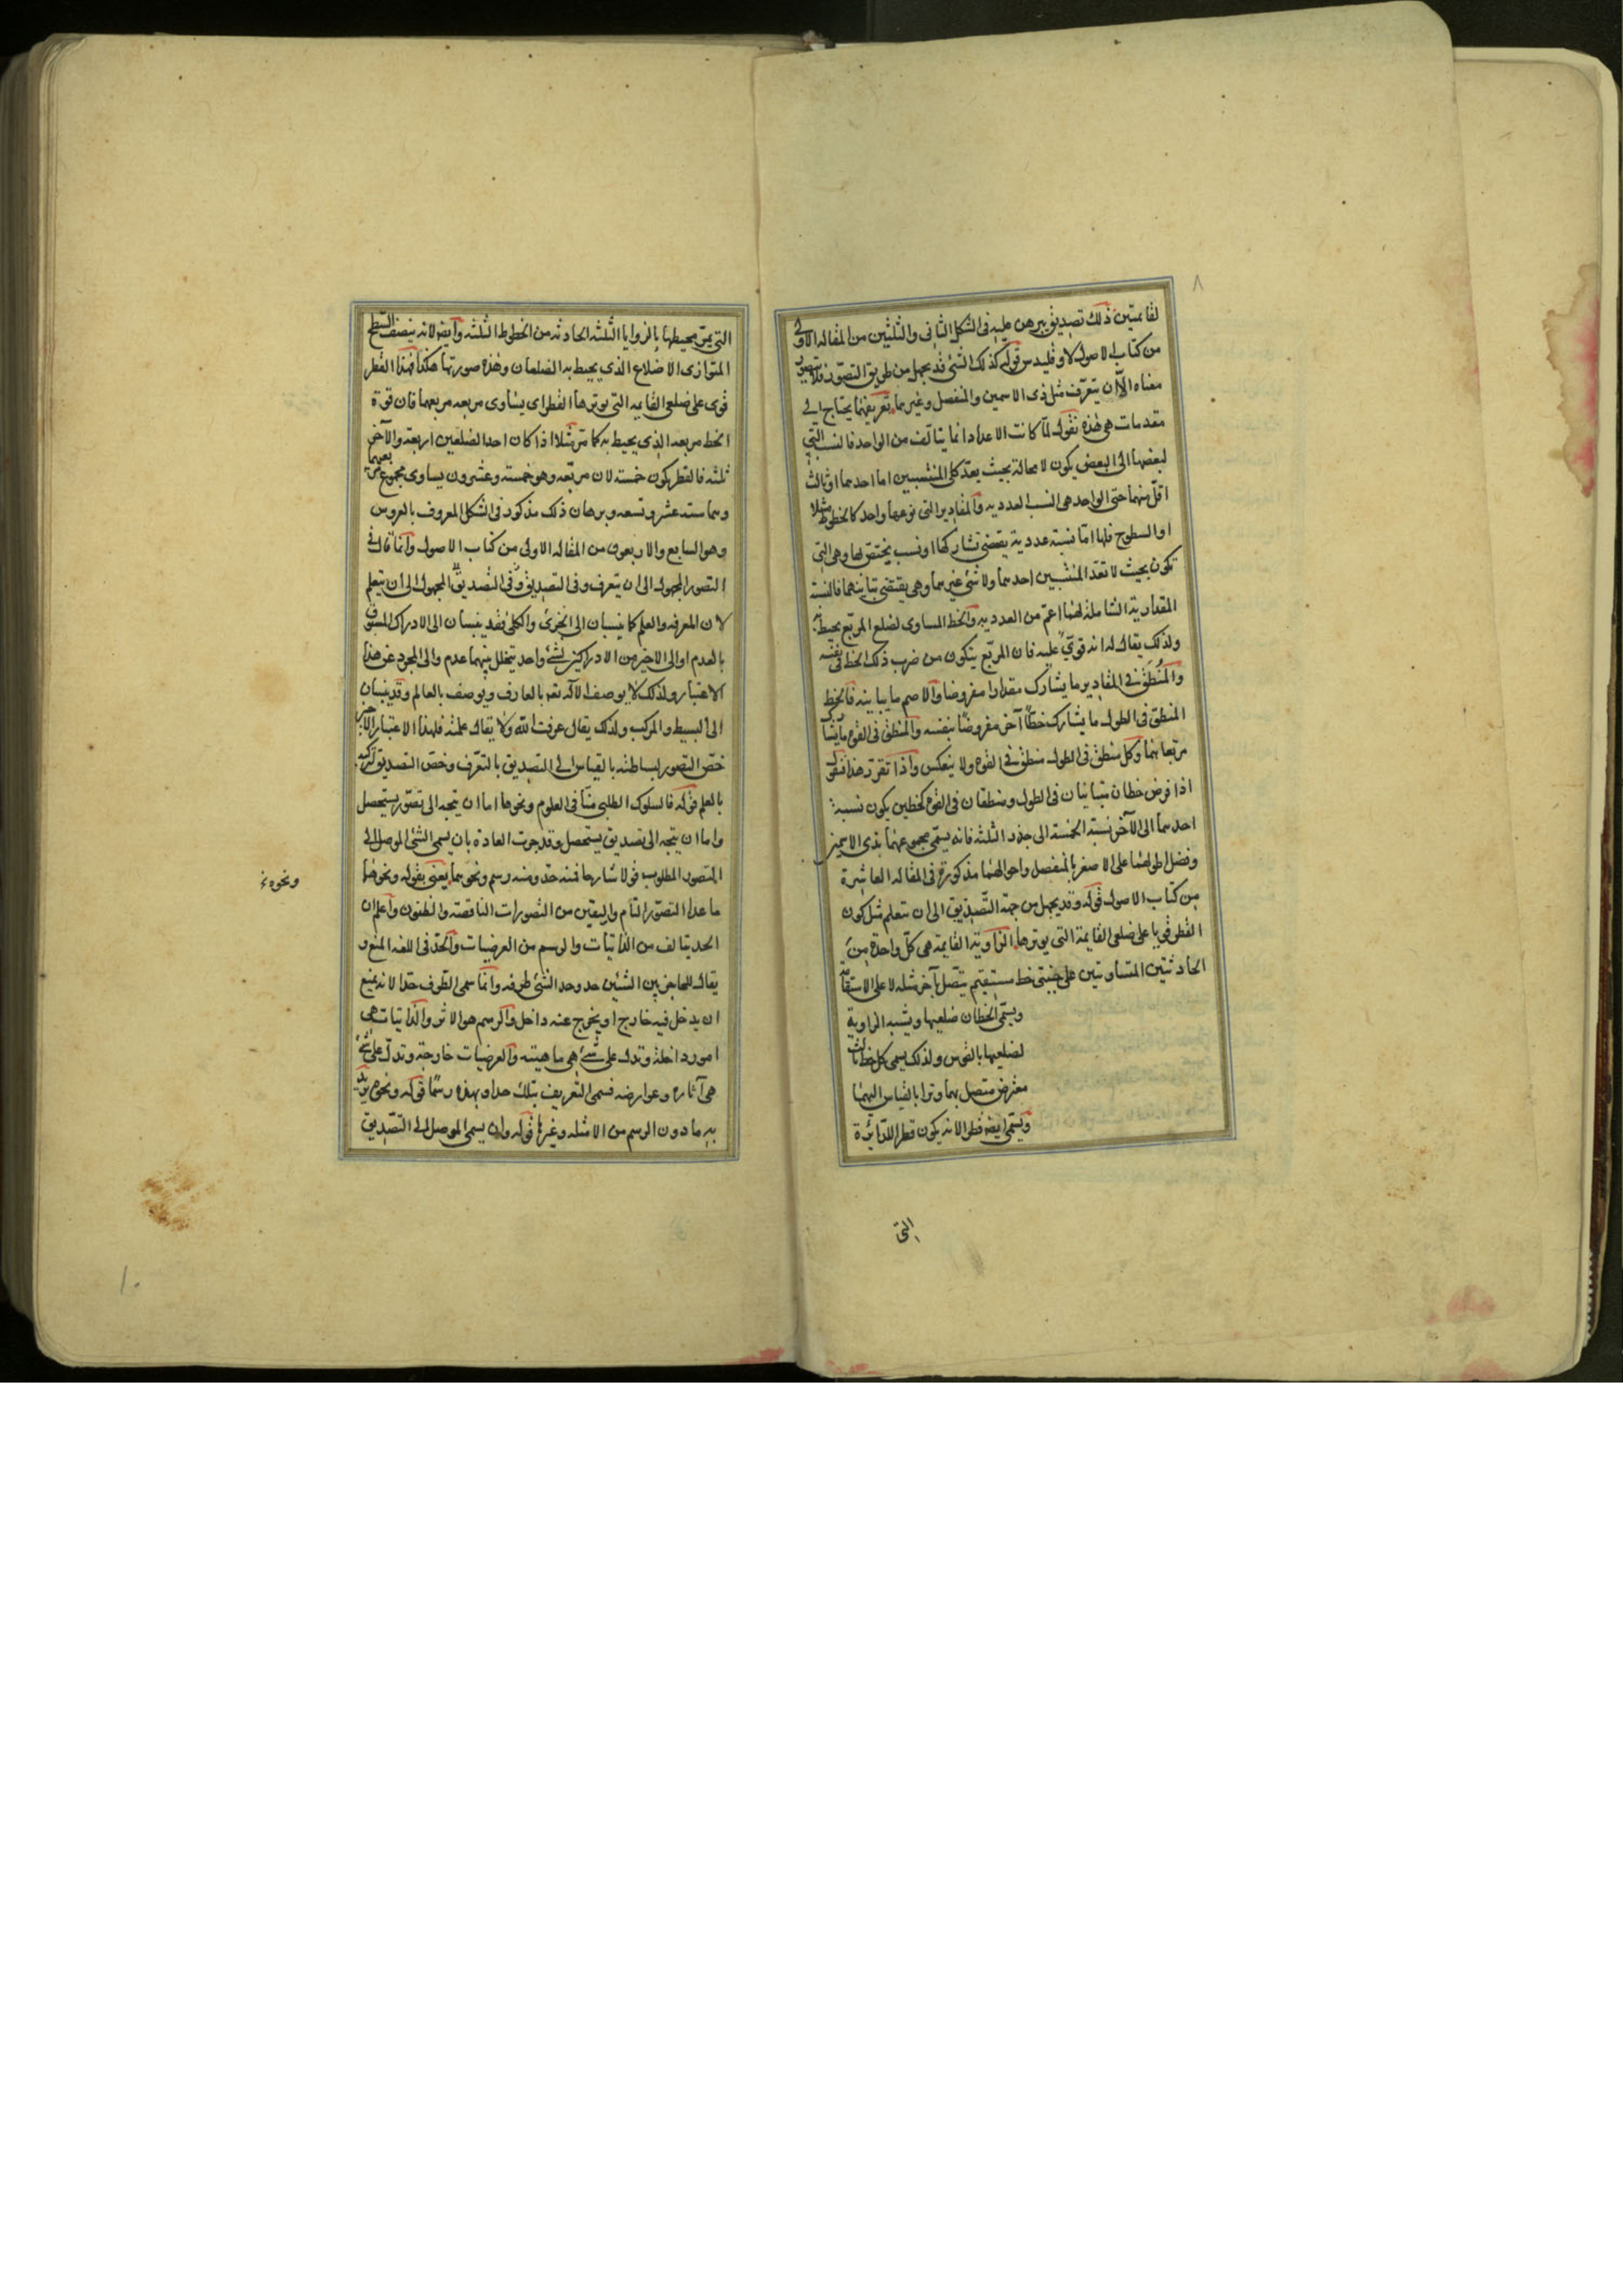 ٨
لقائمتين ذلك تصديق يبرهن عليه فى الشكل الثانى والثلثين من المقاله الاولى
من كتاب الاصول لاوقليدس قوله كذلك الشئ قد يجهل من طريق التصور فلا يتصور
معناه الا ان يتعرف مثل ذى الاسمين والمنفصل وغيرهما تعريفهما يحتاج الى
مقدمات هى هذه نقول لما كانت الاعداد انما يتالف من الواحد فالنسب التى
لبعضها الى البعض يكون لا محالة بحيث يعد كلى المنتسبين اما احدهما او ثالث
اقل منهما حتى الواحد هى النسب العدديه والمقادير التى نوعها واحد كالخطوط مثلا
او السطوح فلها اما نسبة عددية يقتضى تشاركها او نسب يختص بها وهى التى
تكون بحيث لا تعد المنتسبين احدهما ولا شئ غيرهما وهى يقتضى تباينهما فالنسبة
المقدارية الشاملة لهما اعم من العدديه والخط المساوى لضلع المربع يحيط به
ولذلك يقال له انه قوى عليه فان المربع يتكون من ضرب ذلك الخط فى نفسه
والمنطق فى المقادير ما يشارك مقدارا مفروضا والاصم ما يباينه فالخط
المنطق فى الطول ما يشارك خطا آخر مفروضا بنفسه والمنطق فى القوة ما يتشارك
مربعاهما وكل منطق فى الطول منطق فى القوة ولا ينعكس واذا تقرر هذا فنقول
اذا فرض خطان متباينان فى الطول ومنطقان فى القوة كخطين يكون نسبة
احدهما الى الآخر نسبة الخمسة الى جذر الثلثة فانه يسمى مجموعهما بذى الاسمين
وفضل اطولهما على الاصغر بالمنفصل واحوالهما مذكورة فى المقاله العاشرة
من كتاب الاصول قوله وقد يجهل من جهة التصديق الى ان يتعلم مثل كون
القطر قويا على ضلعى القايمة التى يوترها الزاوية القايمة هى كل واحدة من
الحادثتين المتساويتين على جنبتى خط مستقيم يتصل بآخر مثله لا على الاستقامة
ويسمى الخطان ضلعيها ويشبه الزاوية
لضلعيها بالقوس ولذلك يسمى كل خط ثالث
معترض متصل بهما وترا بالقياس اليهما
ويسمى ايضا قطرا لانه يكون قطرا للدائرة
التى
التى يمر محيطها بالزوايا الثلثه الحادثه من الخطوط الثلثه وايضا لانه ينصف السطح
المتوازى الاضلاع الذى يحيط به الضلعان وهذه صورتها هكذا فهذا القطر
قوى على ضلعى القايمه التى يوترها القطر اى يساوى مربعه مربعهما فان قوة
الخط مربعه الذى يحيط به كما مر مثلا اذا كان احد الضلعين اربعة والآخر
ثلثه فالقطر يكون خمسة لان مربعه وهو خمسة وعشرون يساوى مجموع مربعيهما
وهما ستة عشر وتسعه وبرهان ذلك مذكور فى الشكل المعروف بالعروس
وهو السابع والاربعون من المقاله الاولى من كتاب الاصول وانما قال فى
التصور المجهول الى ان يتعرف وفى التصديق المجهول الى ان يتعلم
لان المعرفه والعلم كما ينسبان الى الجزئ والكلى فقد ينسبان الى الادراك المسبوق
بالعدم او الى الاخير من الادراكين لشئ واحد يتخلل بينهما عدم والى المجرد عن هذا
الاعتبار ولذلك لا يوصف الاله تعم بالعارف ويوصف بالعالم وقد ينسبان
الى البسيط والمركب ولذلك يقال عرفت الله ولا يقال علمته فلهذا الاعتبار الاخير
خص التصور لبساطته بالقياس الى التصديق بالتعرف وخص التصديق لتركبه
بالعلم قوله فالسلوك الطلبى منا فى العلوم ونحوها اما ان يتجه الى تصور يستحصل
واما ان يتجه الى تصديق يستحصل وقد جرت العادة بان يسمى الشئ الموصل الى
التصور المطلوب قولا شارحا فمنه حد ومنه رسم ونحوهما يعنى بقوله ونحوها
ما عدا التصور التام واليقين من التصورات الناقصة والظنون واعلم ان
الحد يتالف من الذاتيات والرسم من العرضيات والحد فى اللغه المنع و
يقال للحاجز بين الشيئين حد وحد الشئ طرفه وانما سمى الطرف حدا لانه يمنع
ان يدخل فيه خارج او يخرج عنه داخل والرسم هو الاثر والذاتيات هى
امور داخلة وتدل على شئ هى ماهيته والعرضيات خارجة وتدل على شئ
هى آثاره وعوارضه فسمى التعريف بتلك حدا وبهذه رسما قوله ونحوه يريد
به ما دون الرسم من الامثله وغيرها قوله وان يسمى الموصل الى التصديق
ونحوه
١٠